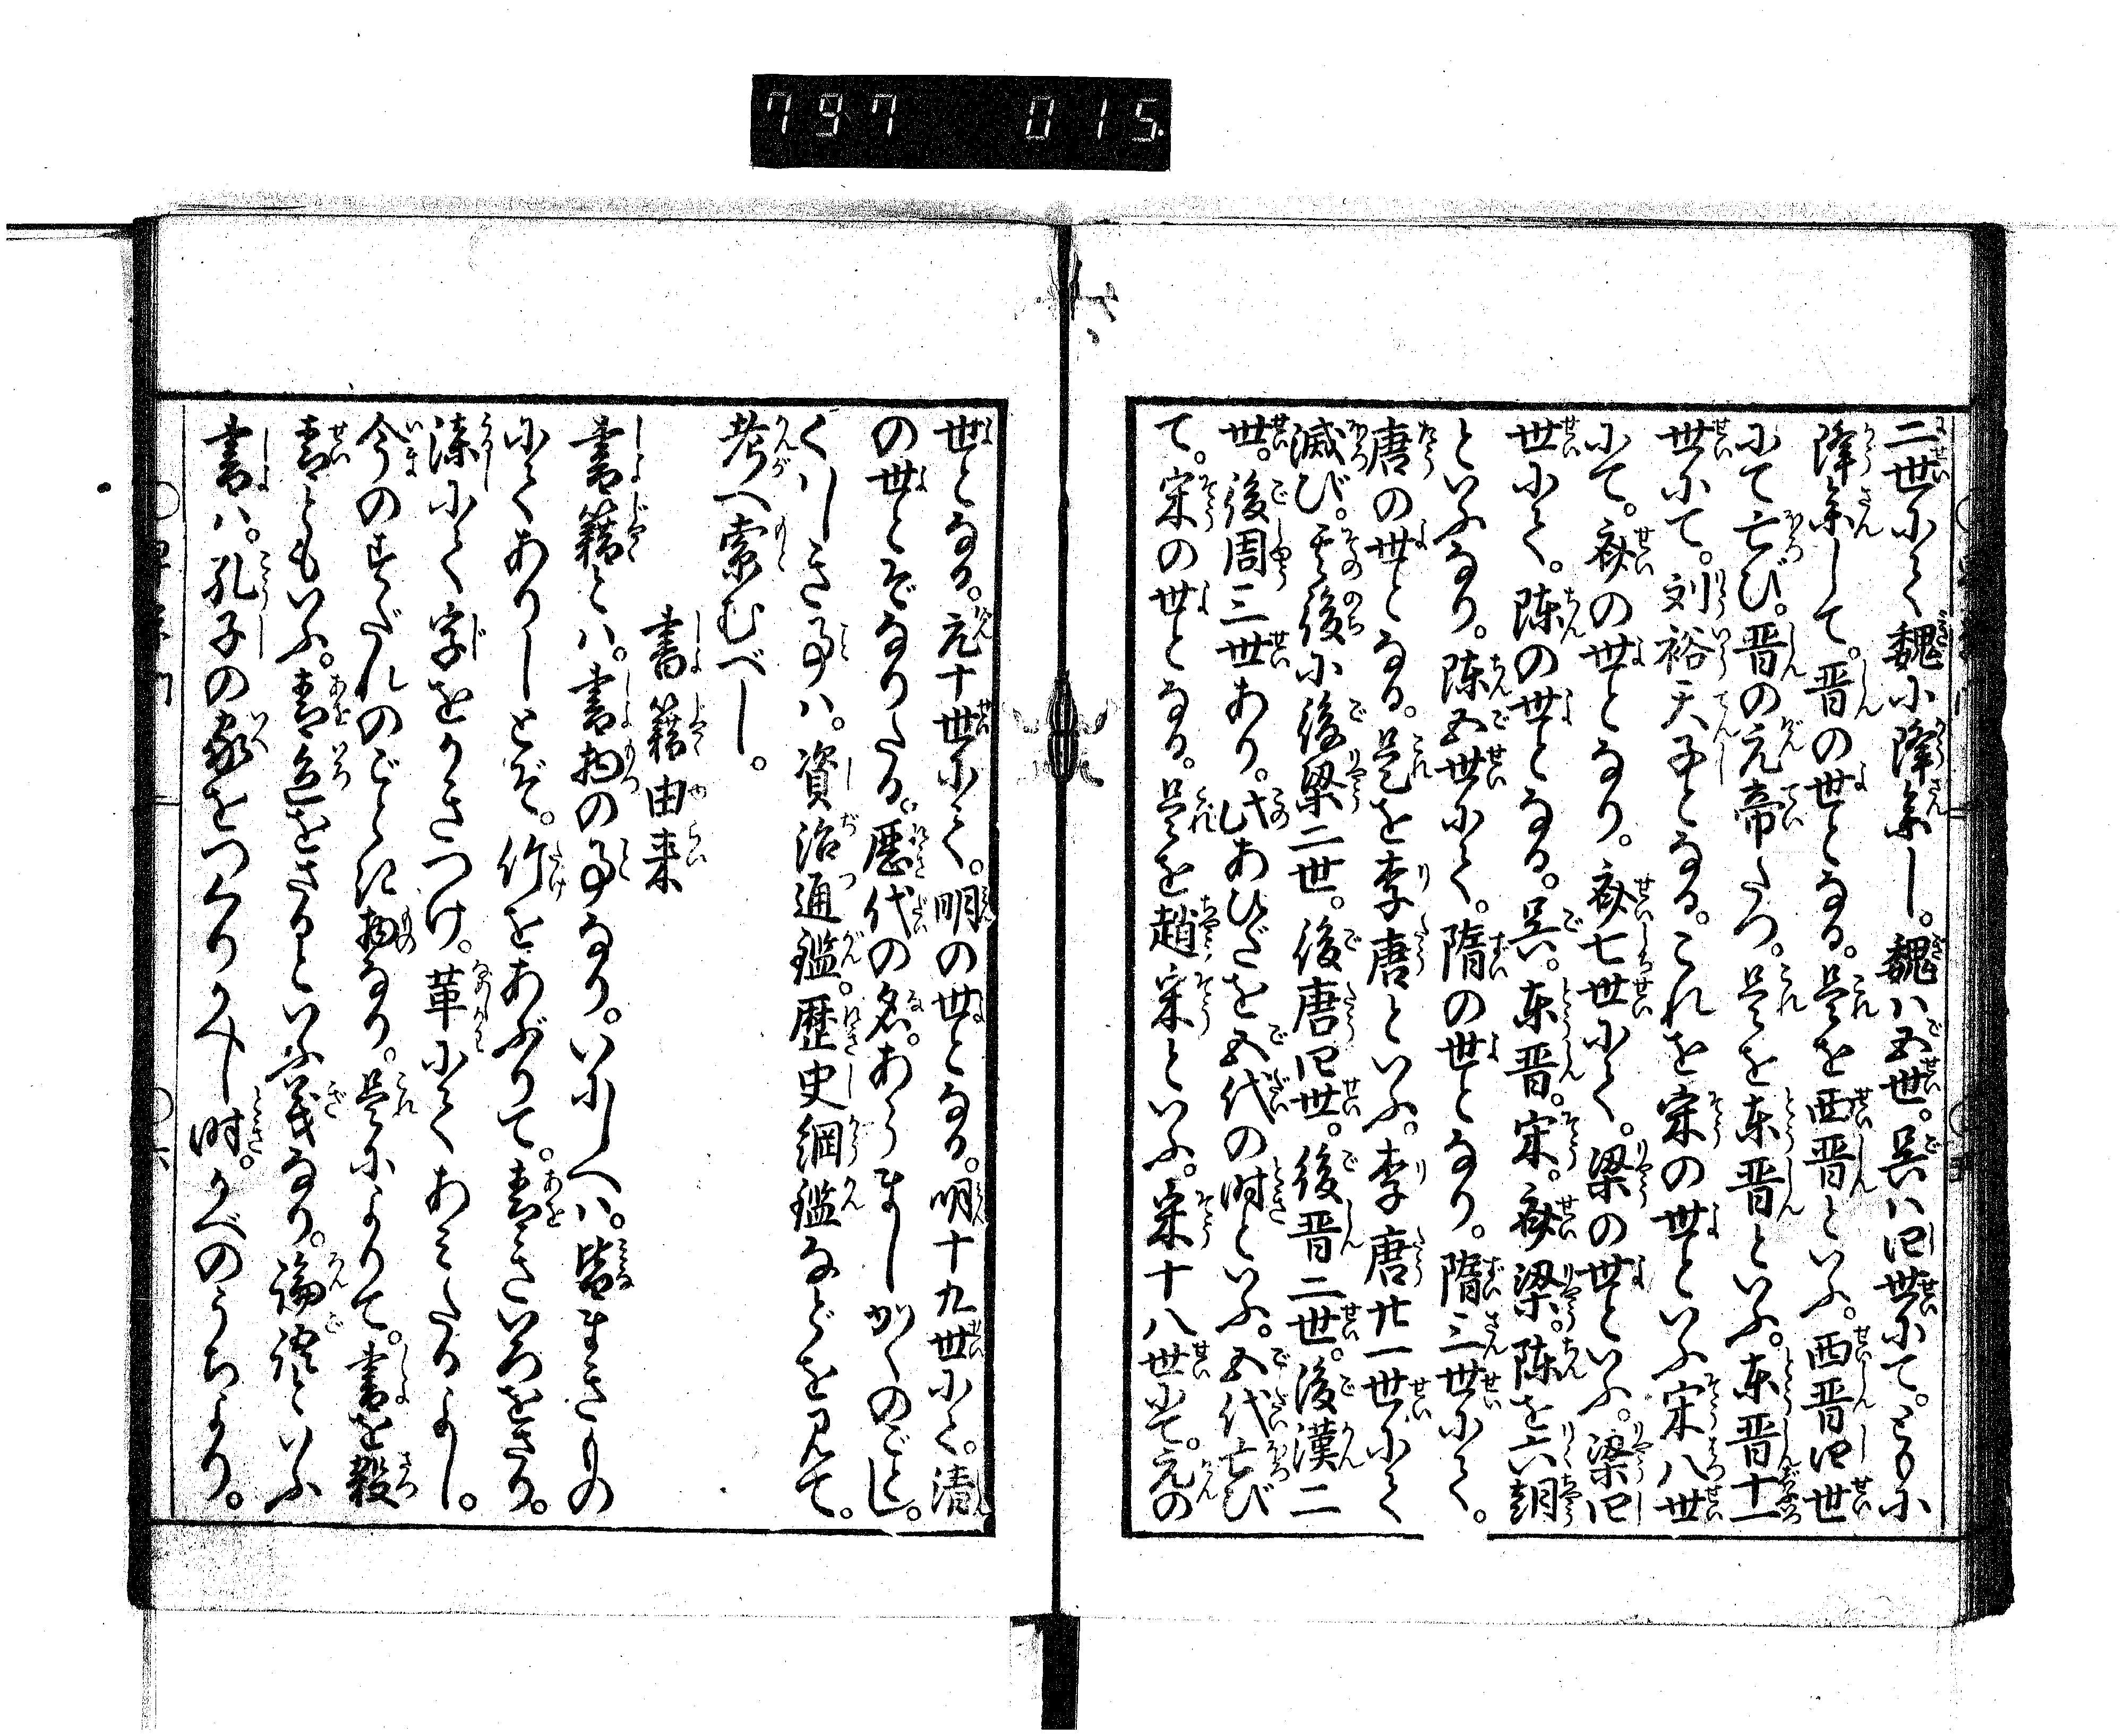 797 015.
二世にて魏に降参し。魏ハ五世。呉ハ四世にて。ともに
降参して。晋の世となる。是を西晋といふ。西晋四世
にて亡び。晋の元帝たつ。是を東晋といふ。東晋十一
世にて。刘裕天子となる。これを宋の世といふ宋八世
にて。斉の世となり。斉七世にて。梁の世といふ。梁四
世にて。陳の世となる。呉。東晋。宋。斉梁。陳を六朝
といふなり。陳五世にて。隋の世となり。隋三世にて。
唐の世となる。是を李唐といふ。李唐廿一世にて
滅び。其後に後梁二世。後唐四世。後晋二世。後漢二
世。後周三世あり。此あひだを五代の时といふ。五代亡び
て。宋の世となる。是を趙宋といふ。宋十八世にて。元の
世となる。元十世にて。明の世となる。明十九世にて。清
の世とぞなりたる。歴代の名。あらましかくのごとし。
くハしき事ハ。資治通鑑。歴史綱鑑などを見て。
考へ索むべし。
書籍由来
書籍とハ。書物の事なり。いにしへハ。皆まきもの
にてありしとぞ。竹をあぶりて。青きいろをさり。
漆にて字をかきつけ。革にてあミたるよし。
今のすだれのごとき物なり。是によりて。書を殺
青ともいふ。青色をさるといふ義なり。論語といふ
書ハ。孔子の家をつくりかへし时。かべのうちより。